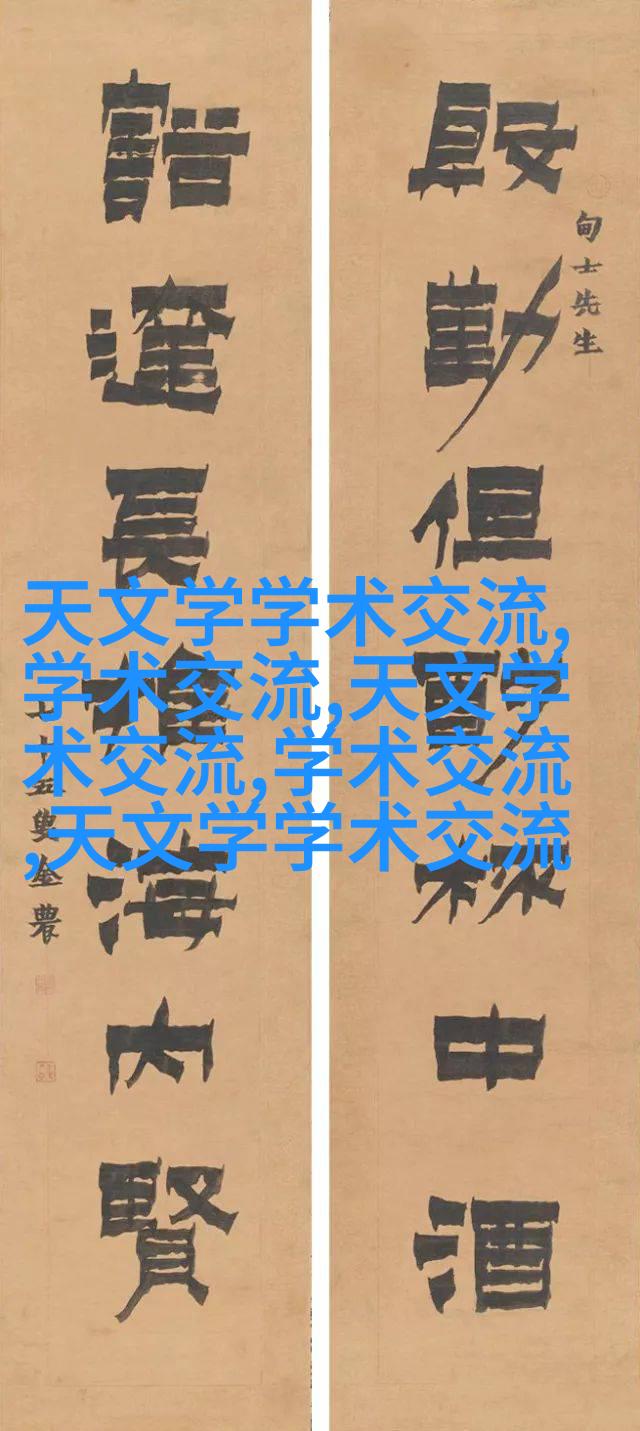 甸士先生
殷勤但酌杯中酒
豁達長推海內賢
七十五叟金農
天文学学术交流,
学术交流,天文学
术交流,学术交流
,天文学学术交流